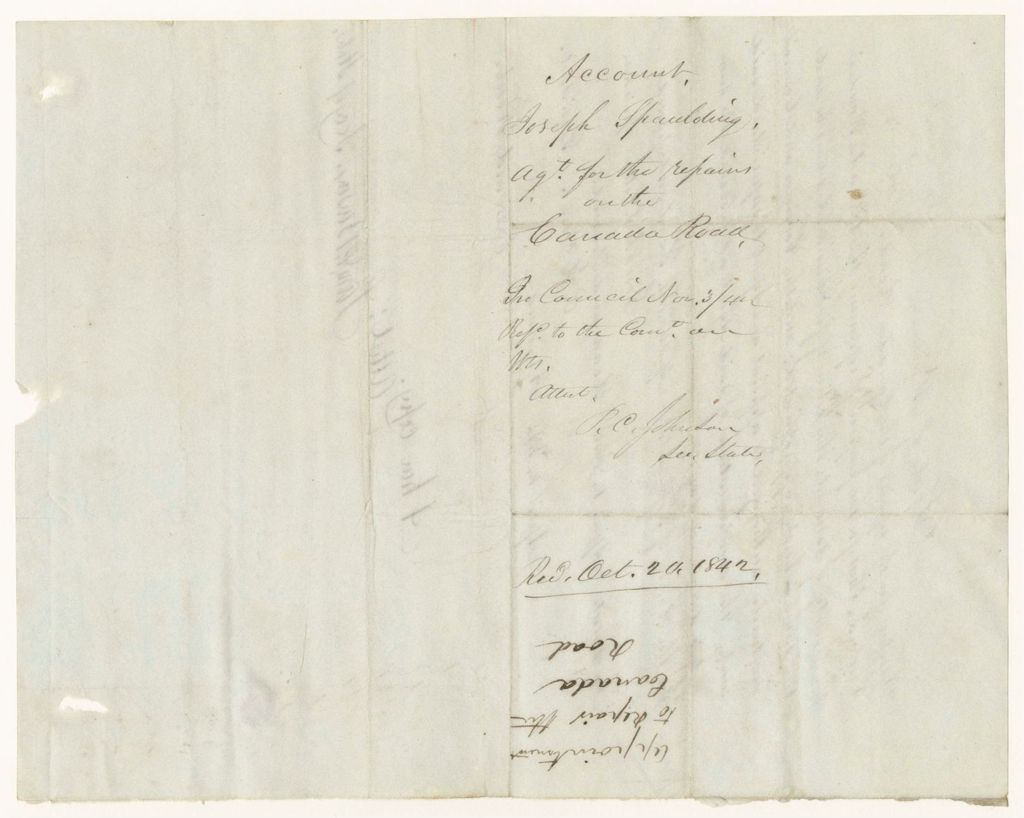 Account.
Joseph Spaulding.
Agt. for the repairs
on the
Canada Road.
In Council Nov. 3/42
Refd. to the Comt. on
Wts.
Attest.
P. C. Johnson
Sec. State.
Recd. Oct. 20. 1842.
Appointment
to Repair the
Canada
Road